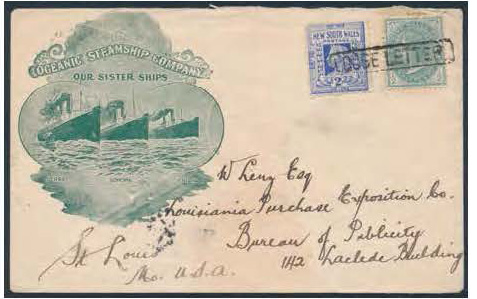 OCEANIC STEAMSHIP COMPANY
OUR SISTER SHIPS
SONOMA
NEW SOUTH WALES
POSTAGE
2
LOOSE LETTER
W Lenz Esq
Louisiania Purchase Exposition Co.
Bureau of Publicity
1142 Laclede Building
St Louis
Mo. U.S.A.